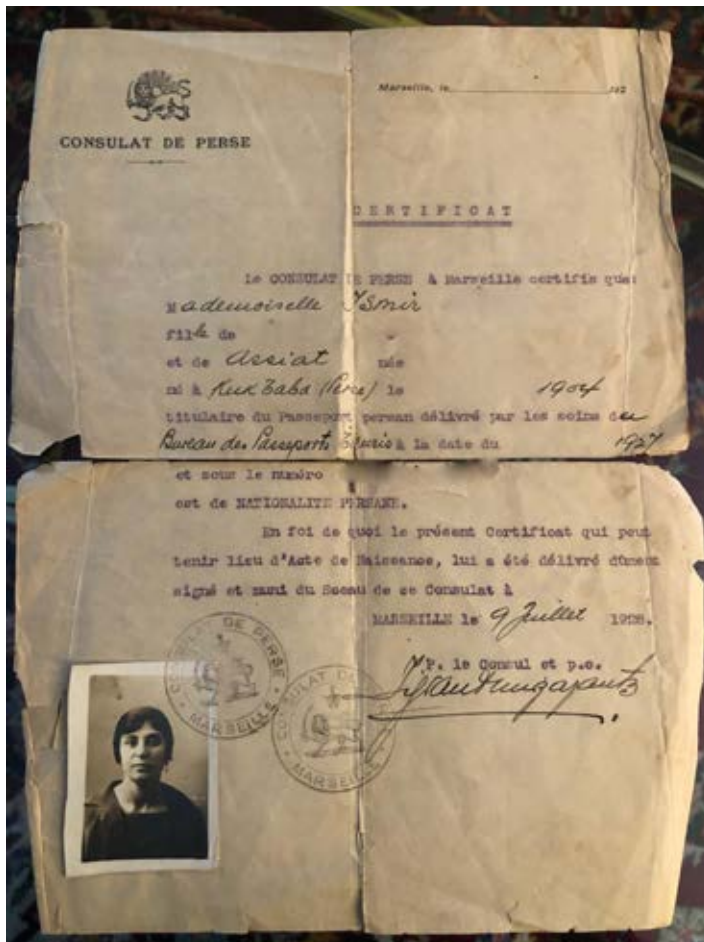 CONSULAT DE PERSE
Marseille, le 192
CERTIFICAT
le CONSULAT DE PERSE à Marseille certifie que:
Mademoiselle Ismir
fille de
et de Assiat née
né à (Perse) le 1904
titulaire du Passeport persan délivré par les soins du
Bureau des Passeports à la date du 1927
et sous le numéro
est de NATIONALITE PERSANE.
En foi de quoi le présent Certificat qui peut
tenir lieu d'Acte de Naissance, lui a été délivré dûment
signé et muni du Sceau de ce Consulat à
MARSEILLE le 9 Juillet 1928.
P. le Consul et p.o.
CONSULAT DE PERSE
MARSEILLE
CONSULAT DE
MARSEILLE